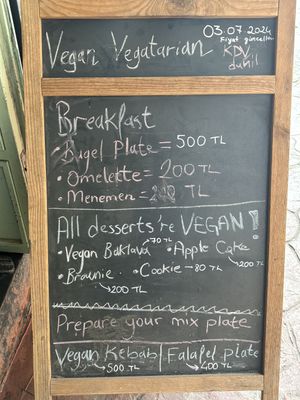 Vegan Vegatarian
03.07.2024
Fiyat güncelleme
KDV
dahil
Breakfast
• Bagel Plate = 500 TL
• Omelette = 200 TL
• Menemen = 200 TL
All desserts're VEGAN!
• Vegan Baklava → 70 TL • Apple Cake → 200 TL
• Brownie → 200 TL • Cookie - 80 TL
Prepare your mix plate
Vegan Kebab → 500 TL / Falafel plate → 400 TL